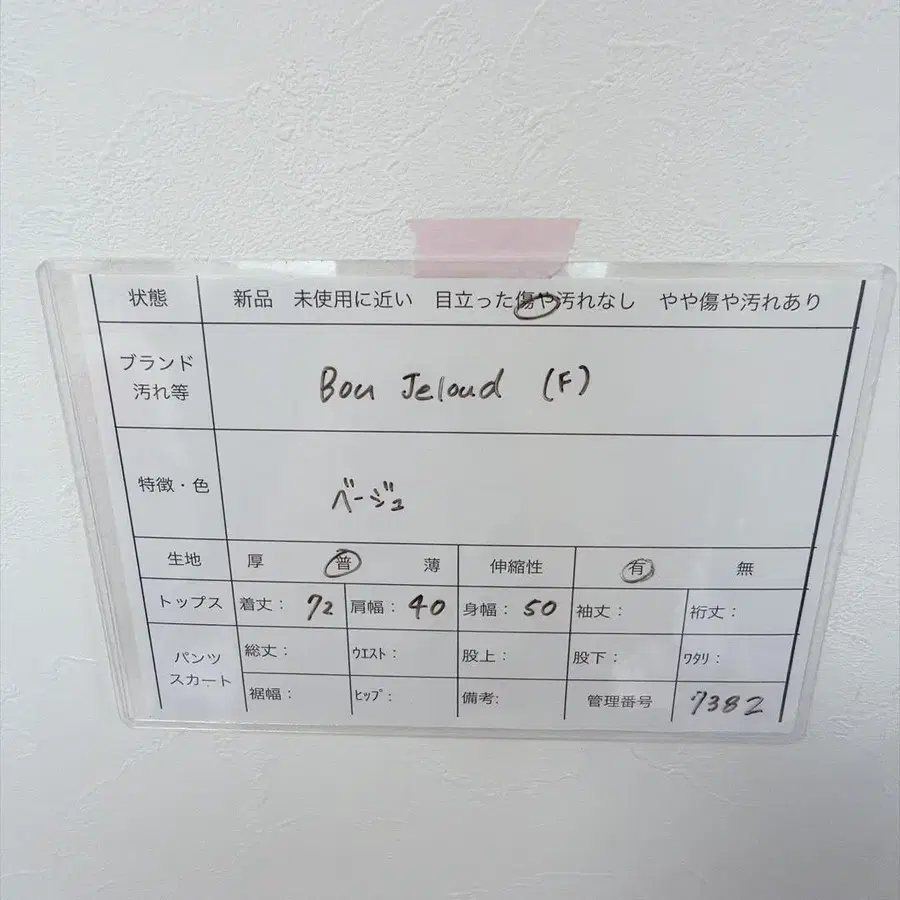 状態 新品 未使用に近い 目立った傷や汚れなし やや傷や汚れあり
ブランド
汚れ等
Bou Jeloud (F)
特徴・色 ベージュ
生地 厚 普 薄 伸縮性 有 無
トップス 着丈: 72 肩幅: 40 身幅: 50 袖丈: 裄丈:
パンツ
スカート
総丈: ウエスト: 股上: 股下: ワタリ:
裾幅: ヒップ: 備考: 管理番号 7382